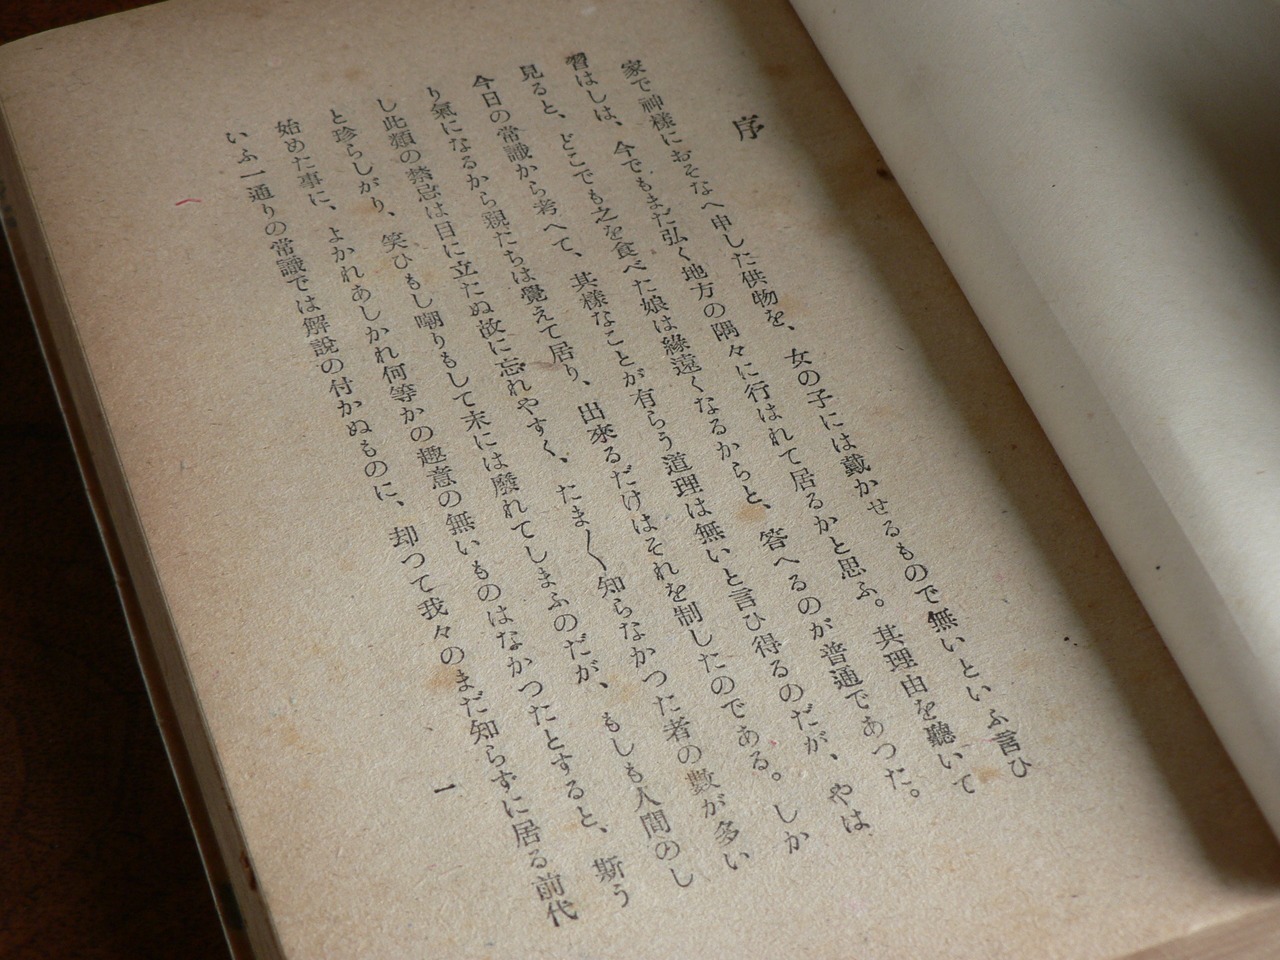 序
家で神樣におそなへ申した供物を、女の子には戴かせるもので無いといふ言ひ
習はしは、今でもまだ弘く地方の隅々に行はれて居るかと思ふ。其理由を聽いて
見ると、どこでも之を食べた娘は緣遠くなるからと、答へるのが普通であつた。
今日の常識から考へて、其樣なことが有らう道理は無いと言ひ得るのだが、やは
り氣になるから親たちは覺えて居り、出來るだけはそれを制したのである。しか
し此類の禁忌は目に立たぬ故に忘れやすく、たま〳〵知らなかつた者の數が多い
と珍らしがり、笑ひもし嘲りもして末には廢れてしまふのだが、もしも人間のし
始めた事に、よかれあしかれ何等かの趣意の無いものはなかつたとすると、斯う
いふ一通りの常識では解說の付かぬものに、却つて我々のまだ知らずに居る前代
一